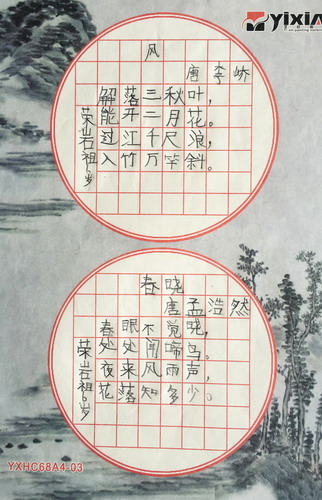 YIXIA
风
唐 李 峤
解落三秋叶，
能开二月花。
过江千尺浪，
入竹万竿斜。
荣岩祖6岁
春晓
唐孟浩然
春眠不觉晓，
处处闻啼鸟。
夜来风雨声，
花落知多少。
荣岩祖6岁
YXHC68A4-03